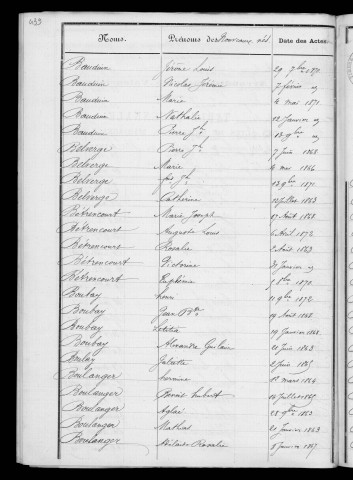 Noms. Prénoms des Nouveaux nés Date des Actes
Bauduin Jérôme Louis 29 7bre 1871
Bauduin Nicolas Firmin 7 février id
Bauduin Marie 4 mai 1871
Bauduin Nathalie 12 Janvier id
Bauduin Pierre Jh
Belverge Pierre Jh 7 Juin 1868
Belverge Marie 4 mai 1866
Belverge Jh
Belverge Catherine Juillet 1863
Bétrencourt Marie Joseph 17 Août 1868
Bétrencourt Auguste Louis 6 Avril 1872
Bétrencourt Rosalie Août 1863
Bétrencourt Victorine Janvier id
Bétrencourt Euphémie
Boubay Henri 11 9bre 1872
Boubay Jean Bte 19 Août 1868
Boubay Letitia 19 Janvier 1868
Boubay Alexandre Guilain Juin 1863
Boubay Juliette 2 Juin 1865
Boulanger Hermine mars 1864
Boulanger Benoit Hubert Juillet 1867
Boulanger Aglaé 28 9bre 1863
Boulanger Mathias 20 Janvier 1863
Boulanger Rosalie 8 Janvier 1867